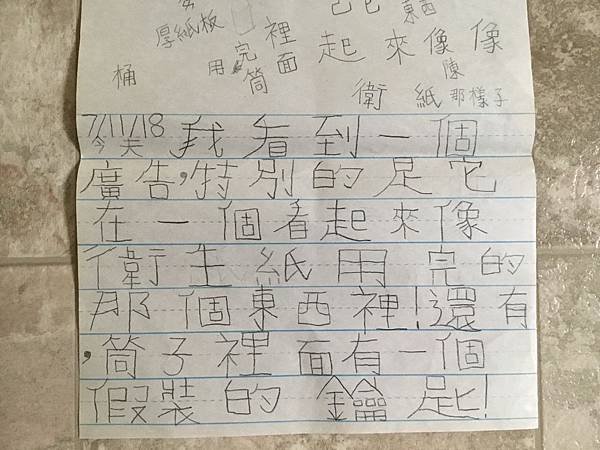 厚紙板
裡面
起來像像
東西
用完筒
桶
衛
紙
陳
那樣子
7/11/18
今天我看到一個
廣告,特別的是它
在一個看起來像
衛生紙用完的
那個東西裡!還有
,筒子裡面有一個
假裝的鑰匙!